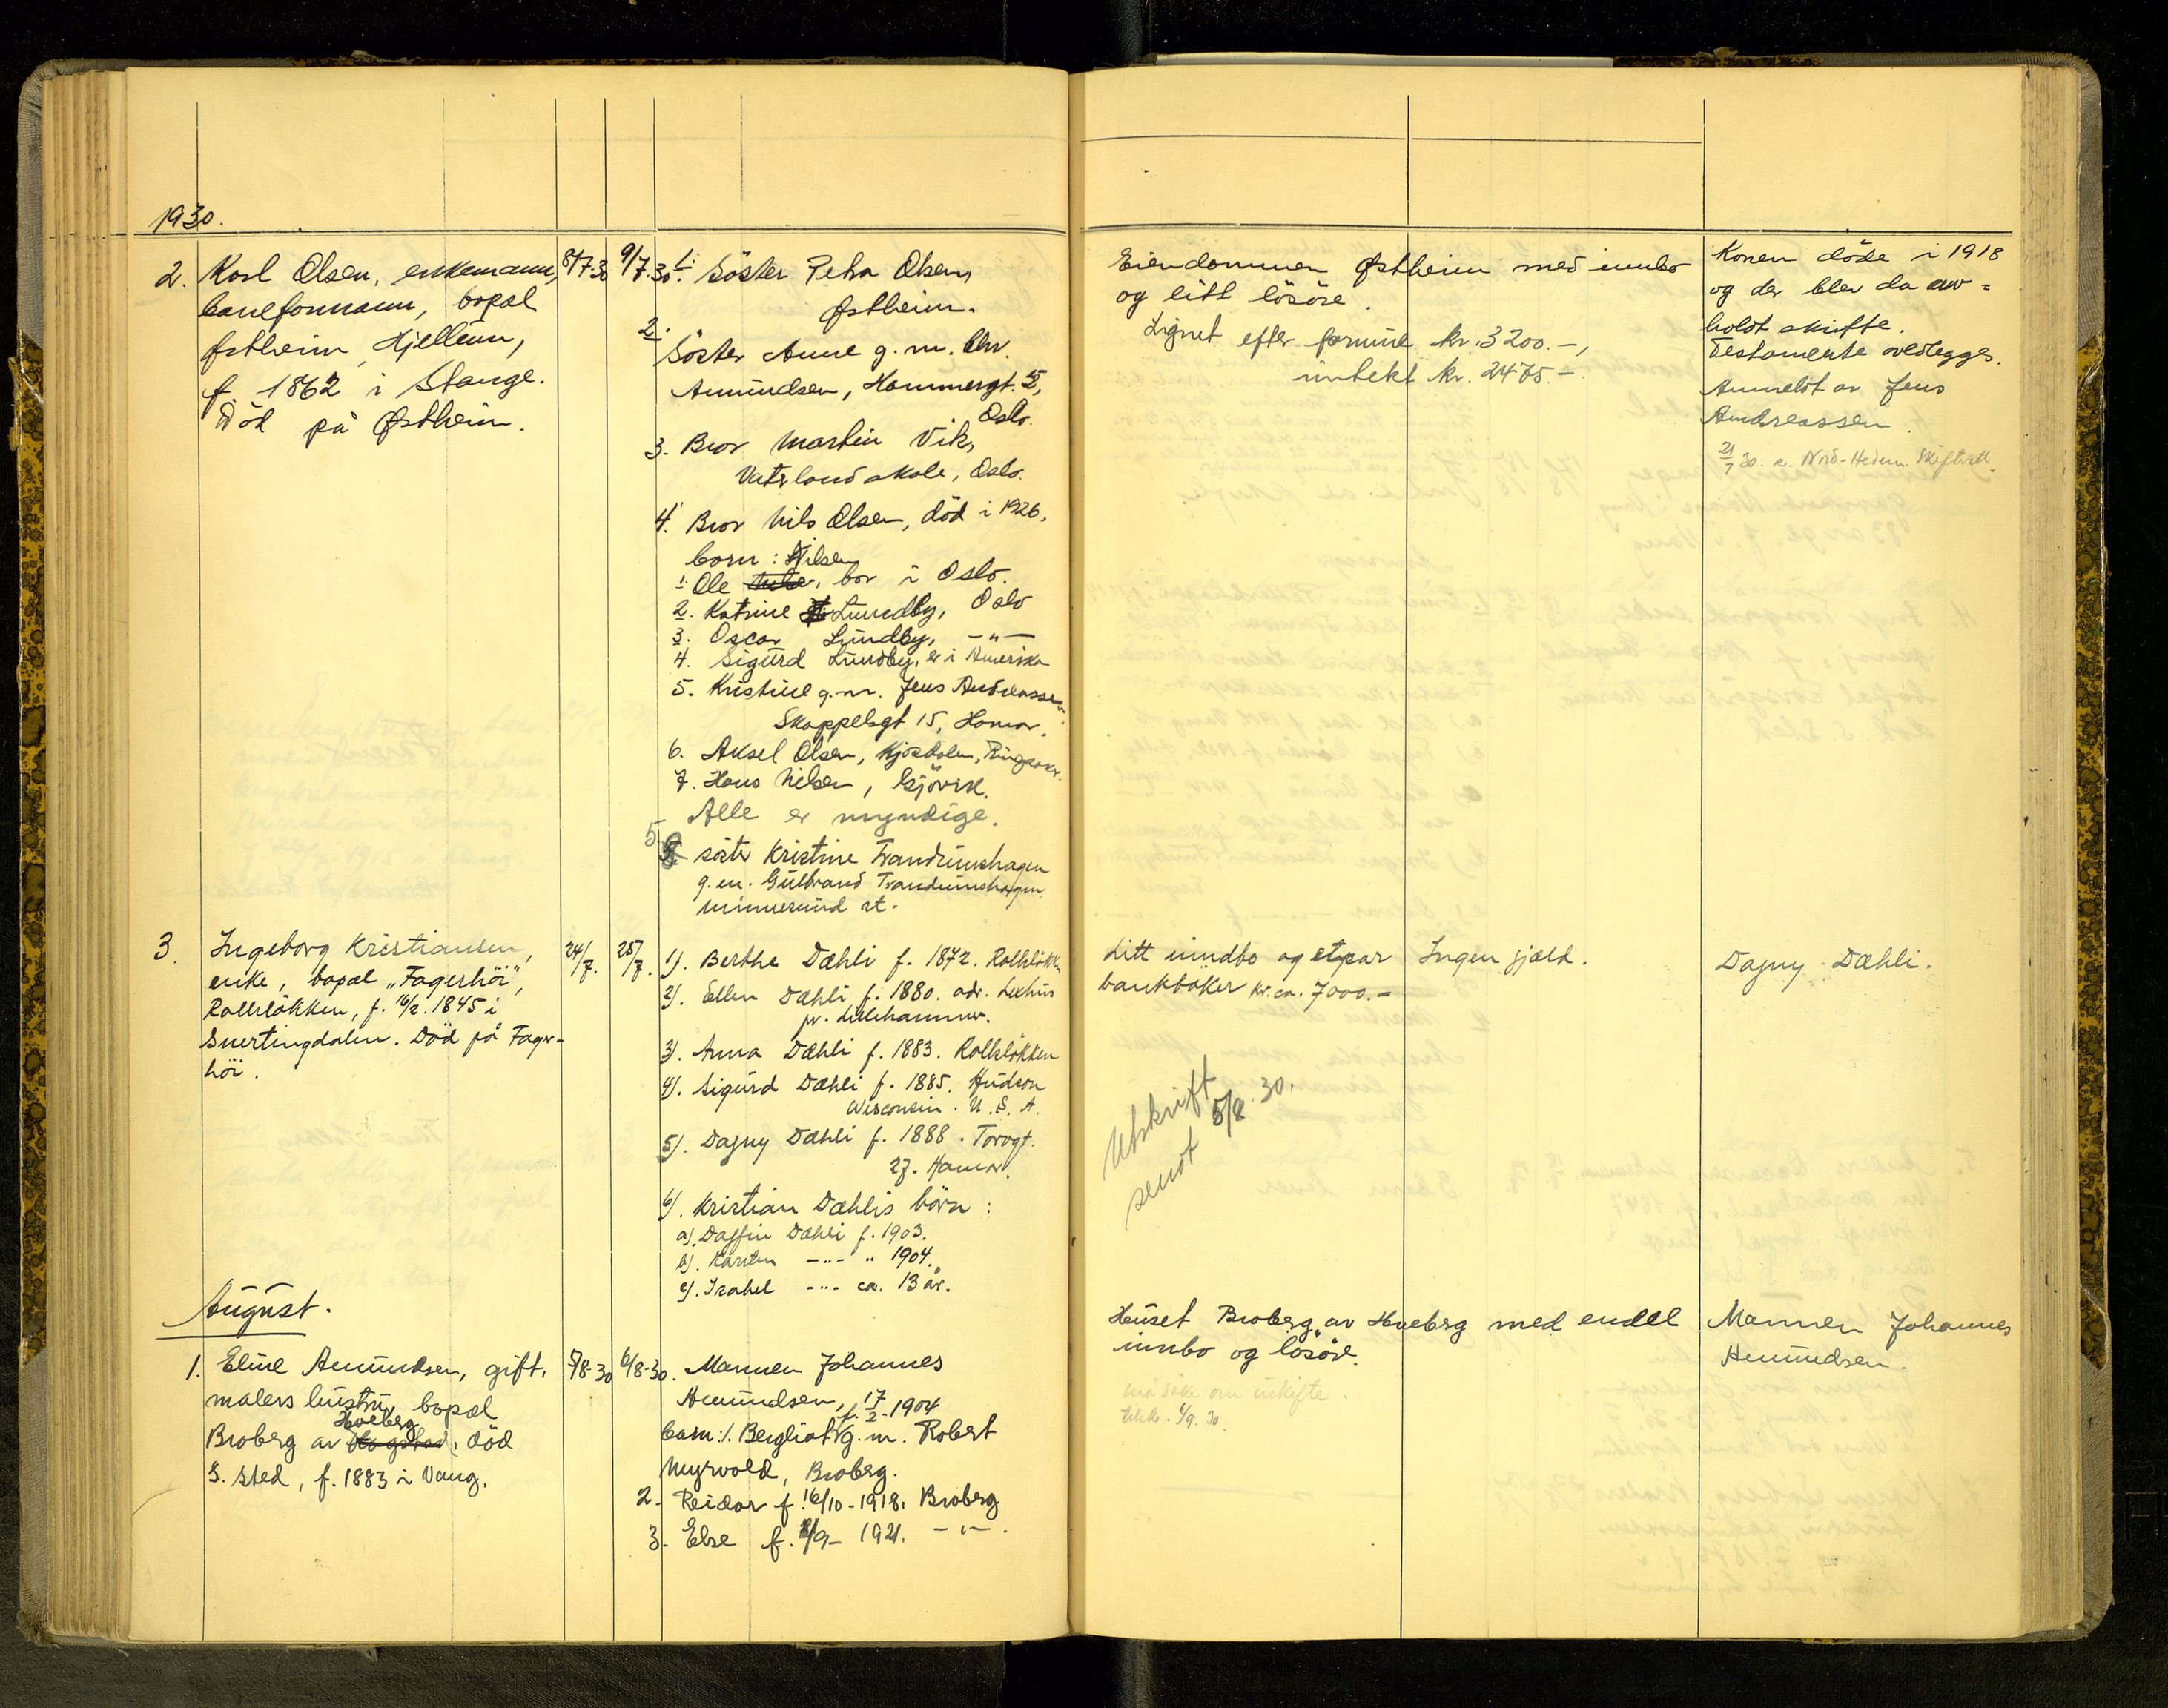 1930.
2. Karl Olsen, enkemann,
baneformann, bopæl
Østheim, Hjellum,
f. 1862 i Stange.
Död på Østheim.
8/7.30
9/7.30.
1. Söster Petra Olsen,
Østheim.
2. Söster Anne g.m. Chr.
Amundsen, Hammergt. 5,
Oslo.
3. Bror Martin Vik,
Vaterland skole, Oslo.
4. Bror Nils Olsen, död i 1926,
born: Nilsen
1. Ole, bor i Oslo.
2. Katrine Lundby, Oslo
3. Oscar Lundby, -"-
4. Sigurd Lundby, er i Amerika
5. Kristine g.m. Jens Andreassen,
Skappelsgt 15, Hamar.
6. Aksel Olsen, Kjosdalen, Ringsaker.
7. Hans Nilsen, Gjövik.
Alle er myndige.
5. söster Kristine Trandumshagen
g.m. Gulbrand Trandumshagen,
Minnesund st.
Eiendommen Østheim med innbo
og litt lösöre.
Lignet efter formue kr. 3200.-,
inntekt kr. 2475.-
Konen döde i 1918
og der blev da av=
holdt skifte.
Testamente vedlegges.
Anmeldt av Jens
Andreassen.
21/7 30. s. Nord-Hedm. Skifterett.
3. Ingeborg Kristiansen,
enke, bopæl "Fagerhöi",
Rolleløkken, f. 16/2. 1845 i
Snertingdalen. Död på Fager-
höi.
24/7.
25/7.
1). Berthe Dæhli f. 1872. Rolleløkken
2). Ellen Dæhli f. 1880. adr.
pr. Lillehammer.
3). Anna Dæhli f. 1883. Rolleløkken
4). Sigurd Dæhli f. 1885. Hudson
Wisconsin. U.S.A.
5). Dagny Dæhli f. 1888. Torvgt.
27. Hamar.
6). Kristian Dæhlis börn:
a). Dagfin Dæhli f. 1903.
b). Karsten -"- " 1904.
c). Isabel -"- ca. 13 år.
Litt inndbo og etpar
bankböker kr. ca. 7000.-
Ingen gjæld.
Dagny Dæhli.
Utskrift
sendt 5/8.30.
August.
1. Eline Amundsen, gift,
malers hustru, bopæl
Hveberg
Broberg av Hagstad, död
s. sted, f. 1883 i Vang.
5/8-30
6/8-30.
Mannen Johannes
Amundsen, f. 17/2-1904
barn: 1. Bergliot g.m. Robert
Myrvold, Broberg.
2. Reidar f. 16/10-1918, Broberg
3. Else f. 1/9-1921. -"-.
Huset Broberg av Hveberg med endel
innbo og lösöre.
må söke om uskifte.
6/9.30.
Mannen Johannes
Amundsen.